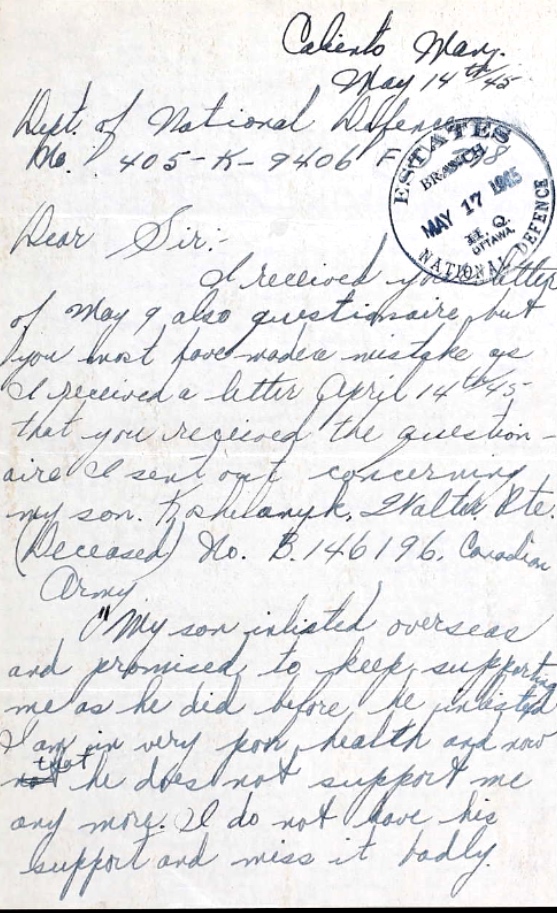 Caliento Man.
May 14th/45
Dept. of National Defence
No. 405-K-9406 F 98
ESTATES
BRANCH
MAY 17 1945
H.Q.
OTTAWA
NATIONAL DEFENCE
Dear Sir:-
I received your letter
of May 9 also questionaire but
you most have made a mistake as
I received a letter April 14th/45
that you received the question-
aire I sent out concerning
my son. Koshelanyk, Walter Pte.
(Deceased) No. B.146196. Canadian
Army
"My son inlisted overseas
and promised to keep supporting
me as he did before he inlisted
I am in very poor health and now
that
he does not support me
any more. I do not have his
support and miss it badly.